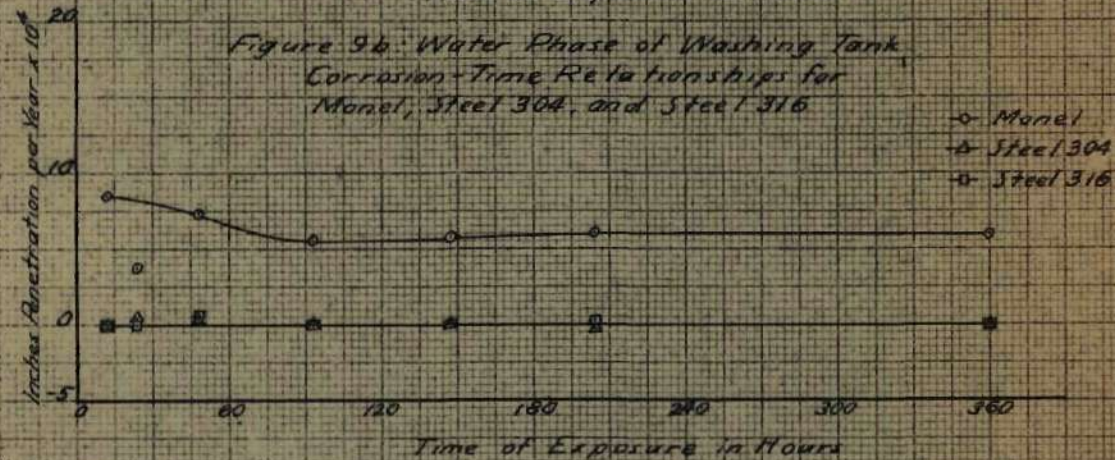 20
Figure 9b. Water Phase of Washing Tank
Corrosion-Time Relationships for
Monel, Steel 304, and Steel 316
Monel
Steel 304
Steel 316
10
0
-5
Inches Penetration per Year x 10⁴
0 60 120 180 240 300 360
Time of Exposure in Hours